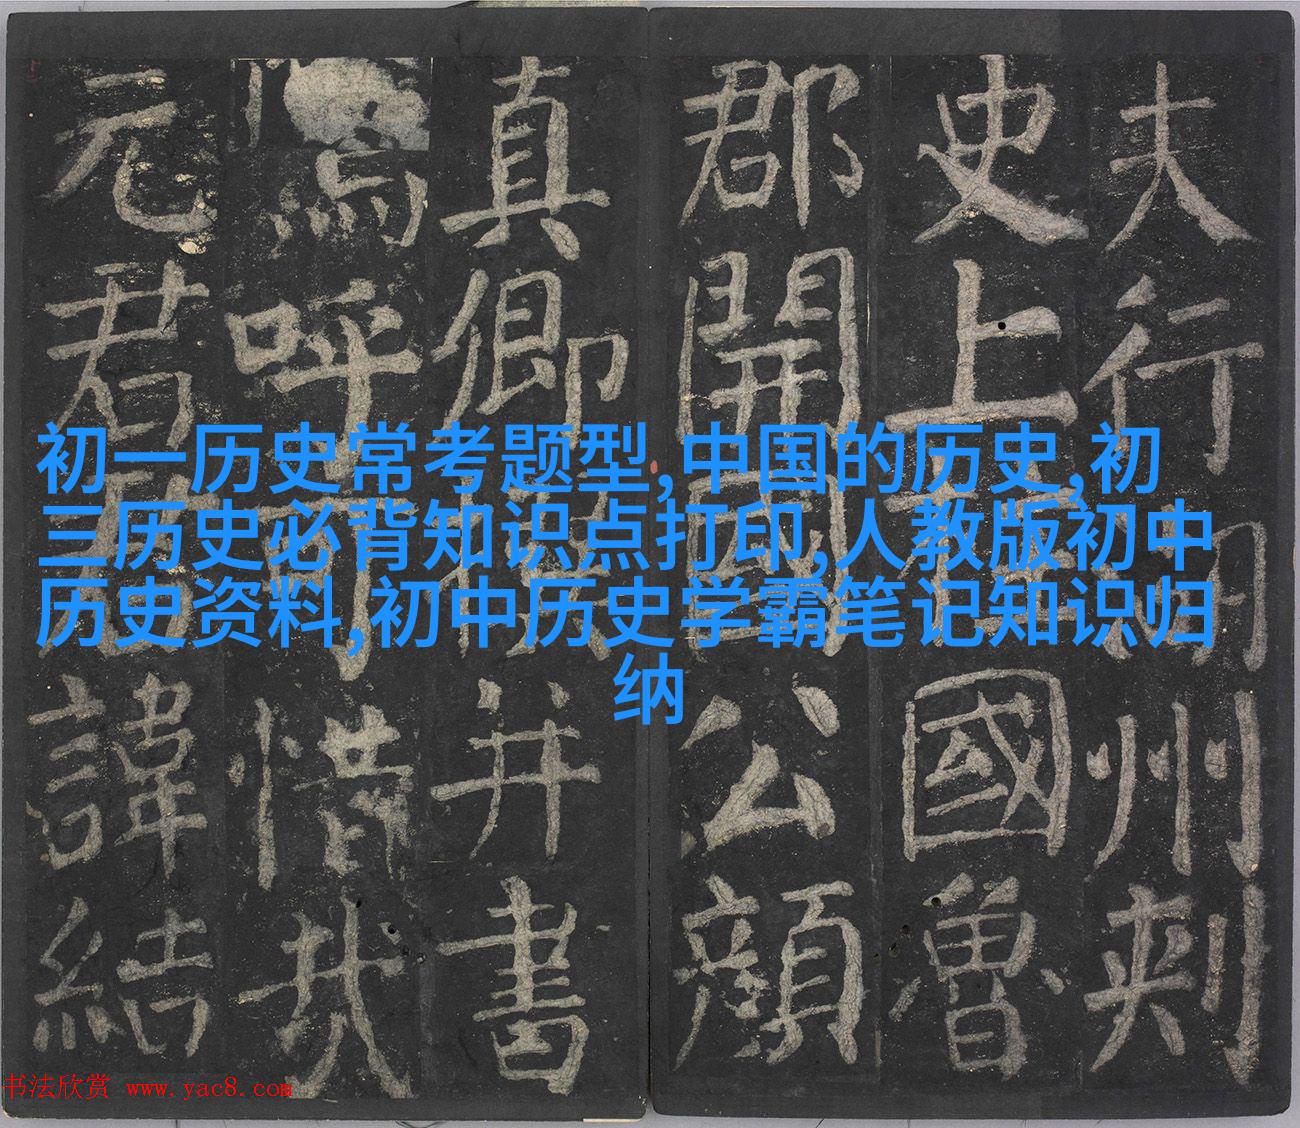 夫行湖州刺
史上柱國魯
郡開國公顏
真卿撰并書
嗚呼可惜哉
元君諱結
初一历史常考题型,中国的历史,初
三历史必背知识点打印,人教版初中
历史资料,初中历史学霸笔记知识归
纳
书法欣赏 www.yac8.com